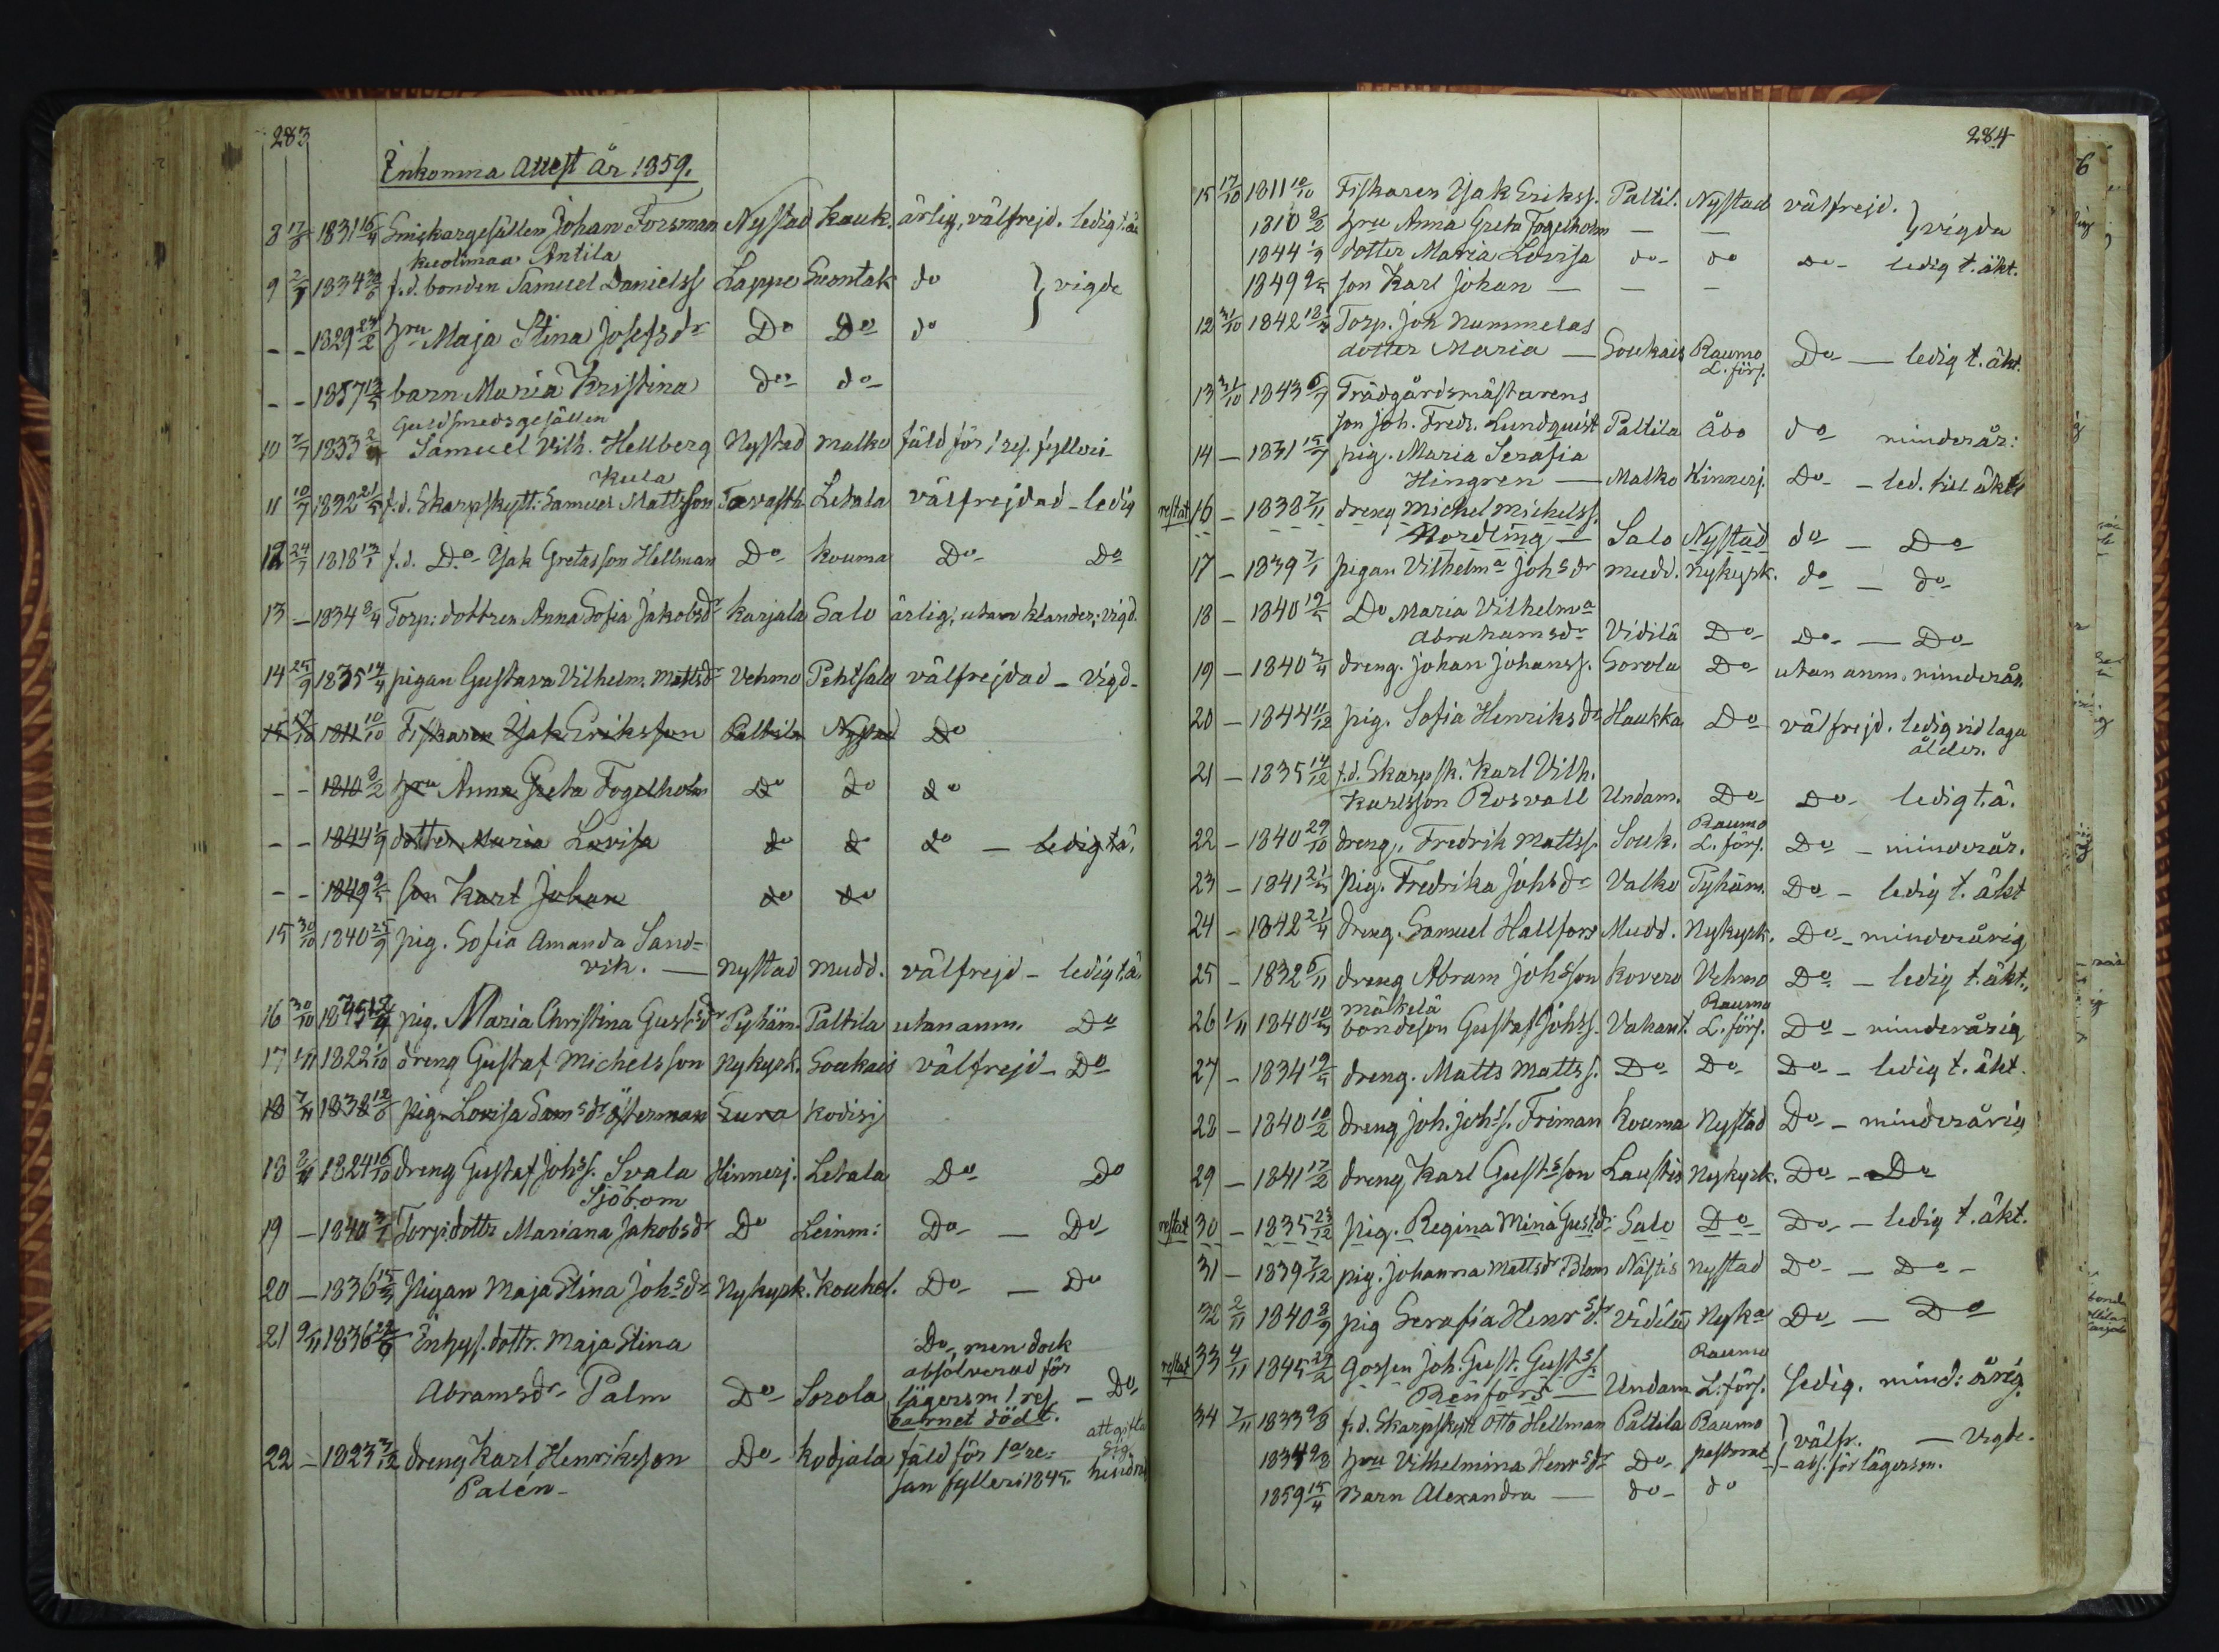 283
Inkomna Attest År 1859.
8 17/6 1831 16/4 Snickargesällen Johan Forsman Nystad Kauk. ärlig, välfrejd. ledig t. äk
Kuolimaa Antila
9 2/7 1834 30/6 f.d. bonden Samuel Danielss Lappo Suontak do } vigde
– – 1829 24/2 hru Maja Stina Josefsdr Do Do do
– – 1857 13/5 barn Maria Kristina do do
Guldsmedsgesällen
10 7/7 1833 Samuel Vilh. Hellberg Nystad Malko fäld för 1 res. fylleri
Kula
11 10/7 1832 21/5 f.d. Skarpskytt. Samuel Mattsson Tavasth. Letala välfrejdad – ledig
12 24/7 1818 13/1 f.d. Do Isak Gretasson Hellman Do Kouma Do Do
13 – 1834 8/4 Torp. dottren Anna Sofia Jakobsdr Karjala Salo ärlig, utan klander; vigd.
14 25/9 1835 14/4 pigan Gustava Vilhelm. Mattsdr Vehmo Pehtsalo välfrejdad – Vigd –
15 17/10 1811 10/10 Fiskaren Isak Eriksson Paltila Nystad Do
– – 1810 8/2 hru Anna Greta Fogelholm Do do do
– – 1844 1/9 dotter Maria Lovisa do do do – ledig t ä.
– – 1849 9/5 son Karl Johan do do
15 30/10 1840 25/9 pig. Sofia Amanda Sand=
vik. — Nystad Mudd. välfrejd – ledig t ä
16 30/10 1845 pig. Maria Christina Gustsdr Pyhäm. Paltila utan anm. Do
17 1/11 1822 1/10 dreng Gustaf Michelsson Nykyrk. Soukais välfrejd – Do
18 7/11 1838 12/6 pig. Lovisa Samsdr Österman Eura Kodisj
18 2/11 1824 16/10 dreng Gustaf Johss. Svala Hinnerj. Letala Do Do
Sjöbom
19 – 1840 Torp. dottr Mariana Jakobsdr Do Leinm: Do – Do
20 – 1836 15/3 Pigan Maja Stina Johsdr Nykyrk. Kouhol. Do – Do
21 9/11 1836 Inhys. dottr. Maja Stina Do, men dock
absolverad för
Abramsdr Palm Do Sorola lägersm 1 res – Do
barnet födt.
22 – 1823 dreng Karl Henriksson Do Kodjala fäld för 1a re- att gifta sig
Palén – san fylleri 1845. hindra
284
15 17/10 1811 10/10 Fiskaren Isak Erikss. Paltil. Nystad välfrejd.
1810 8/2 hru Anna Greta Fogelholm — — } vigda
1844 1/9 dotter Maria Lovisa do do do ledig t. äkt.
1849 9/5 son Karl Johan — — —
12 31/10 1842 Torp. Joh Nummelas
dotter Maria — Soukais Raumo L. förs. Do — ledig t. äkt.
13 31/10 1843 6/7 Trädgårdsmästarens
son Joh. Fredr. Lundquist Paltila Åbo do minderår:
14 – 1831 15/7 pig. Maria Serafia
Hingren — Malko Hinnerj. Do – led. till äkt
restat 16 – 1838 7/11 dreng Michel Michelss.
Nordling — Salo Nystad do – Do
17 – 1839 7/1 pigan Vilhelma Johsdr Mudd. Nykyrk. do – do
18 – 1840 19/5 Do Maria Vilhelma
Abrahamsdr Vidilä Do Do — Do
19 – 1840 3/4 dreng. Johan Johanss. Sorola Do utan anm. minderår.
20 – 1844 11/12 pig. Sofia Henriksdr Haukka Do välfrejd. ledig vid laga
ålder.
21 – 1835 14/12 f.d. Skarpsk. Karl Vilh.
Karlsson Rosvall Undam. Do Do ledig t. ä.
22 – 1840 29/10 dreng. Fredrik Mattss. Souk. Raumo L. förs. Do – minderår.
23 – 1841 21/3 Pig. Fredrika Johsdr Valko Pyhäm. Do – ledig t. äkt
24 – 1842 21/4 dreng. Samuel Hallfors Mudd. Nykyrk. Do – minderårig
25 – 1832 6/11 dreng Abram Johsson Kovero Vehmo Do – ledig t. äkt.
Mälkelä
26 1/11 1840 10/5 bondeson Gustaf Johss. Vahant. Raumo L. förs. Do – minderårig
27 – 1834 19/5 dreng. Matts Mattss. Do Do Do – ledig t. äkt.
28 – 1840 10/2 dreng Joh. Johss. Friman Kouma Nystad Do – minderårig
29 – 1841 17/2 dreng Karl Gustsson Laustis Nykyrk. Do – Do
restat 30 – 1835 23/12 pig. Regina Mina Gustdr Salo Do Do – ledig t. äkt.
31 – 1839 7/12 pig. Johanna Mattsdr Blom Nästis Nystad Do – Do –
32 2/11 1840 8/9 pig Serafia Henrsdr Vidilä Nyka Do – Do
restat 33 4/11 1845 gossen Joh. Gust. Gustss.
Renfors — Undam Raumo L. förs. Sedig. mind: årig.
34 7/11 1833 9/8 f.d. Skarpskytt Otto Hellman Paltila Raumo } välfr. — Vigde.
1834 9/8 hru Vilhelmina Henrsdr Do pastorat – abs. för lägersm.
1859 15/4 Barn Alexandra — do do